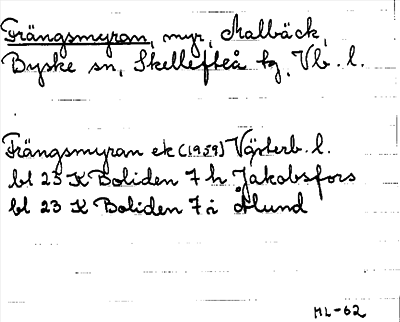 Frängsmyran, myr, Malbäck,
Byske sn, Skellefteå tg, Vb. l.
Frängsmyran ek (1959) Västerb. l.
bl 23 K Boliden 7 h Jakobsfors
bl 23 K Boliden 7 i Ålund
ML-62